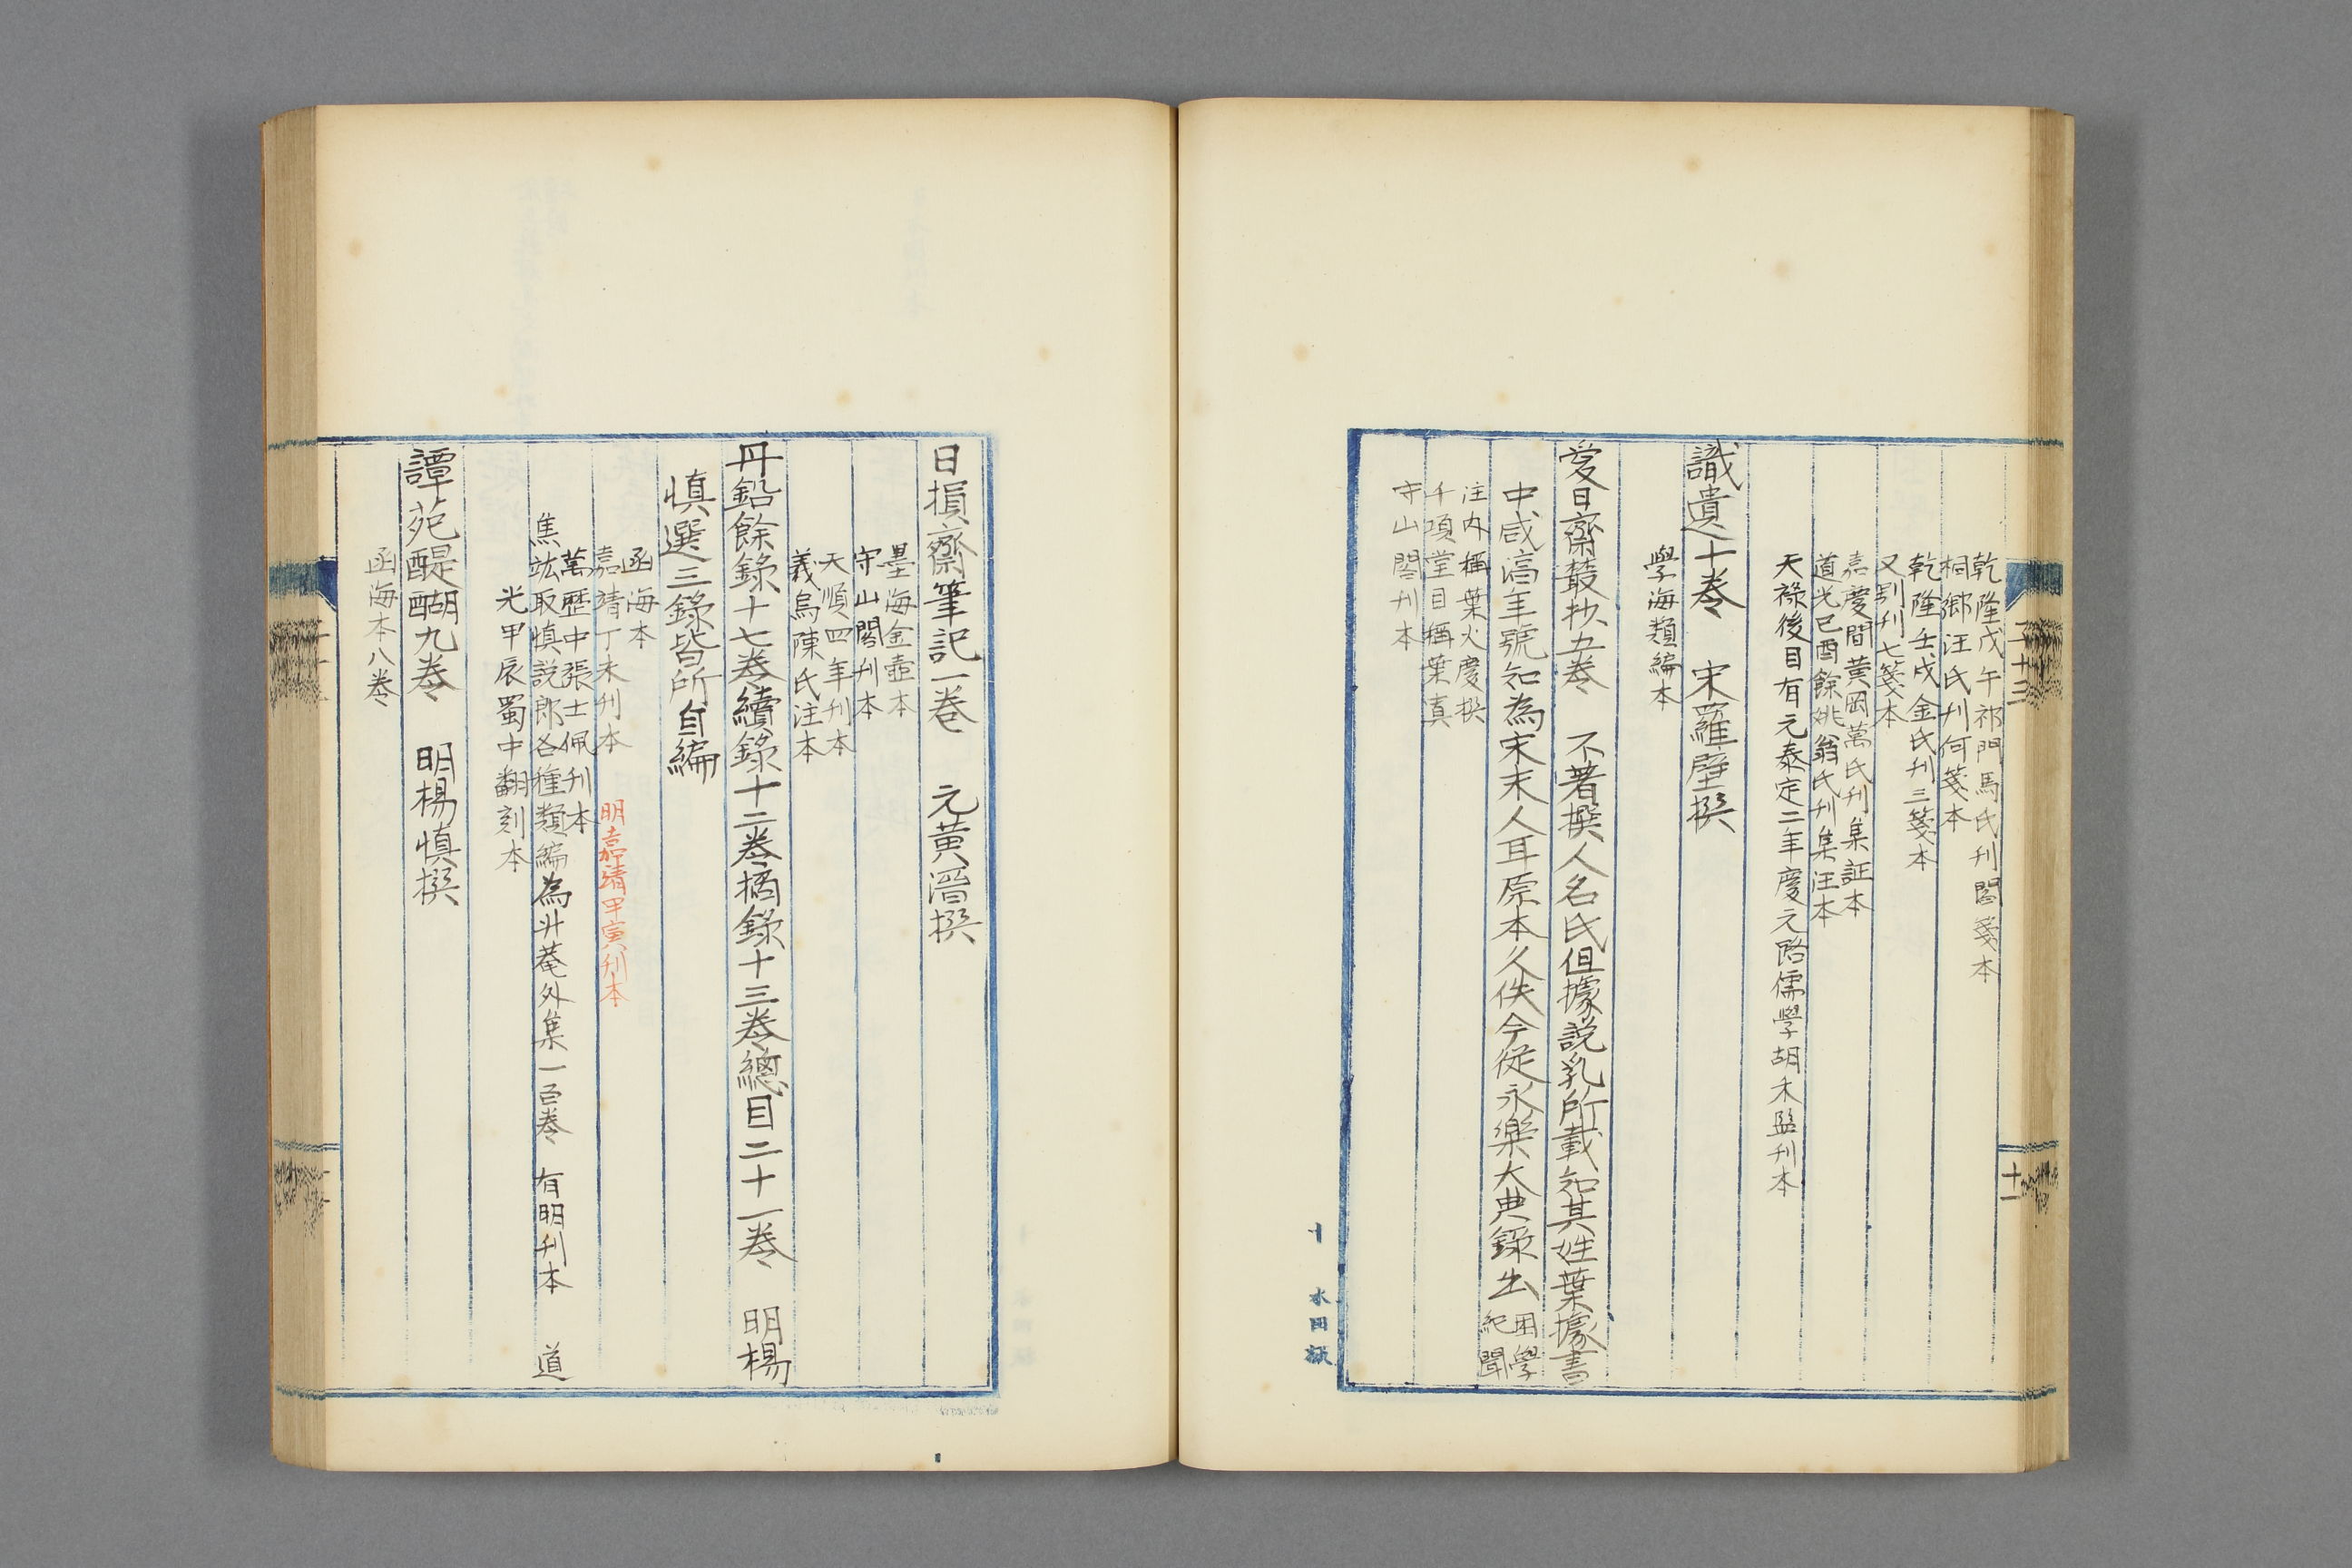 乾隆戊午祁門馬氏刊閻箋本
桐鄉汪氏刊何箋本
乾隆壬戌金氏刊三箋本
又別刊七箋本
嘉慶間黃岡萬氏刊集証本
道光己酉餘姚翁氏刊集注本
天祿後目有元泰定二年慶元路儒學胡禾監刊本
識遺十卷　宋羅璧撰
學海類編本
愛日齋叢抄五卷　不著撰人名氏但據說乳所載知其姓葉據書
中咸淳年號知為宋末人耳原本久佚今從永樂大典錄出
困學
紀聞
注内稱葉大慶撰
千頃堂目稱葉寘
守山閣刊本
二十三
十一
日損齋筆記一卷　元黃溍撰
墨海金壺本
守山閣刊本
天順四年刊本
義烏陳氏注本
丹鉛餘錄十七卷續錄十二卷摘錄十三卷總目二十一卷　明楊
慎選三錄皆所自編
函海本
嘉靖丁未刊本　明嘉靖甲寅刊本
萬歷中張士佩刊本
焦竑取慎說郎各種類編為升菴外集一百卷　有明刊本　道
光甲辰蜀中翻刻本
譚苑醍醐九卷　明楊慎撰
函海本八卷